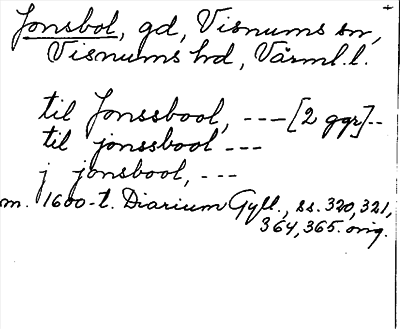 Jonsbol, gd, Visnums sn,
Visnums hd, Värml. l.
til Jonssbool, --- [2 ggr]--
til jonssbool ---
j jonsbool, ---
m. 1600-t. Diarium Gyll., ss. 320, 321,
364, 365. orig.